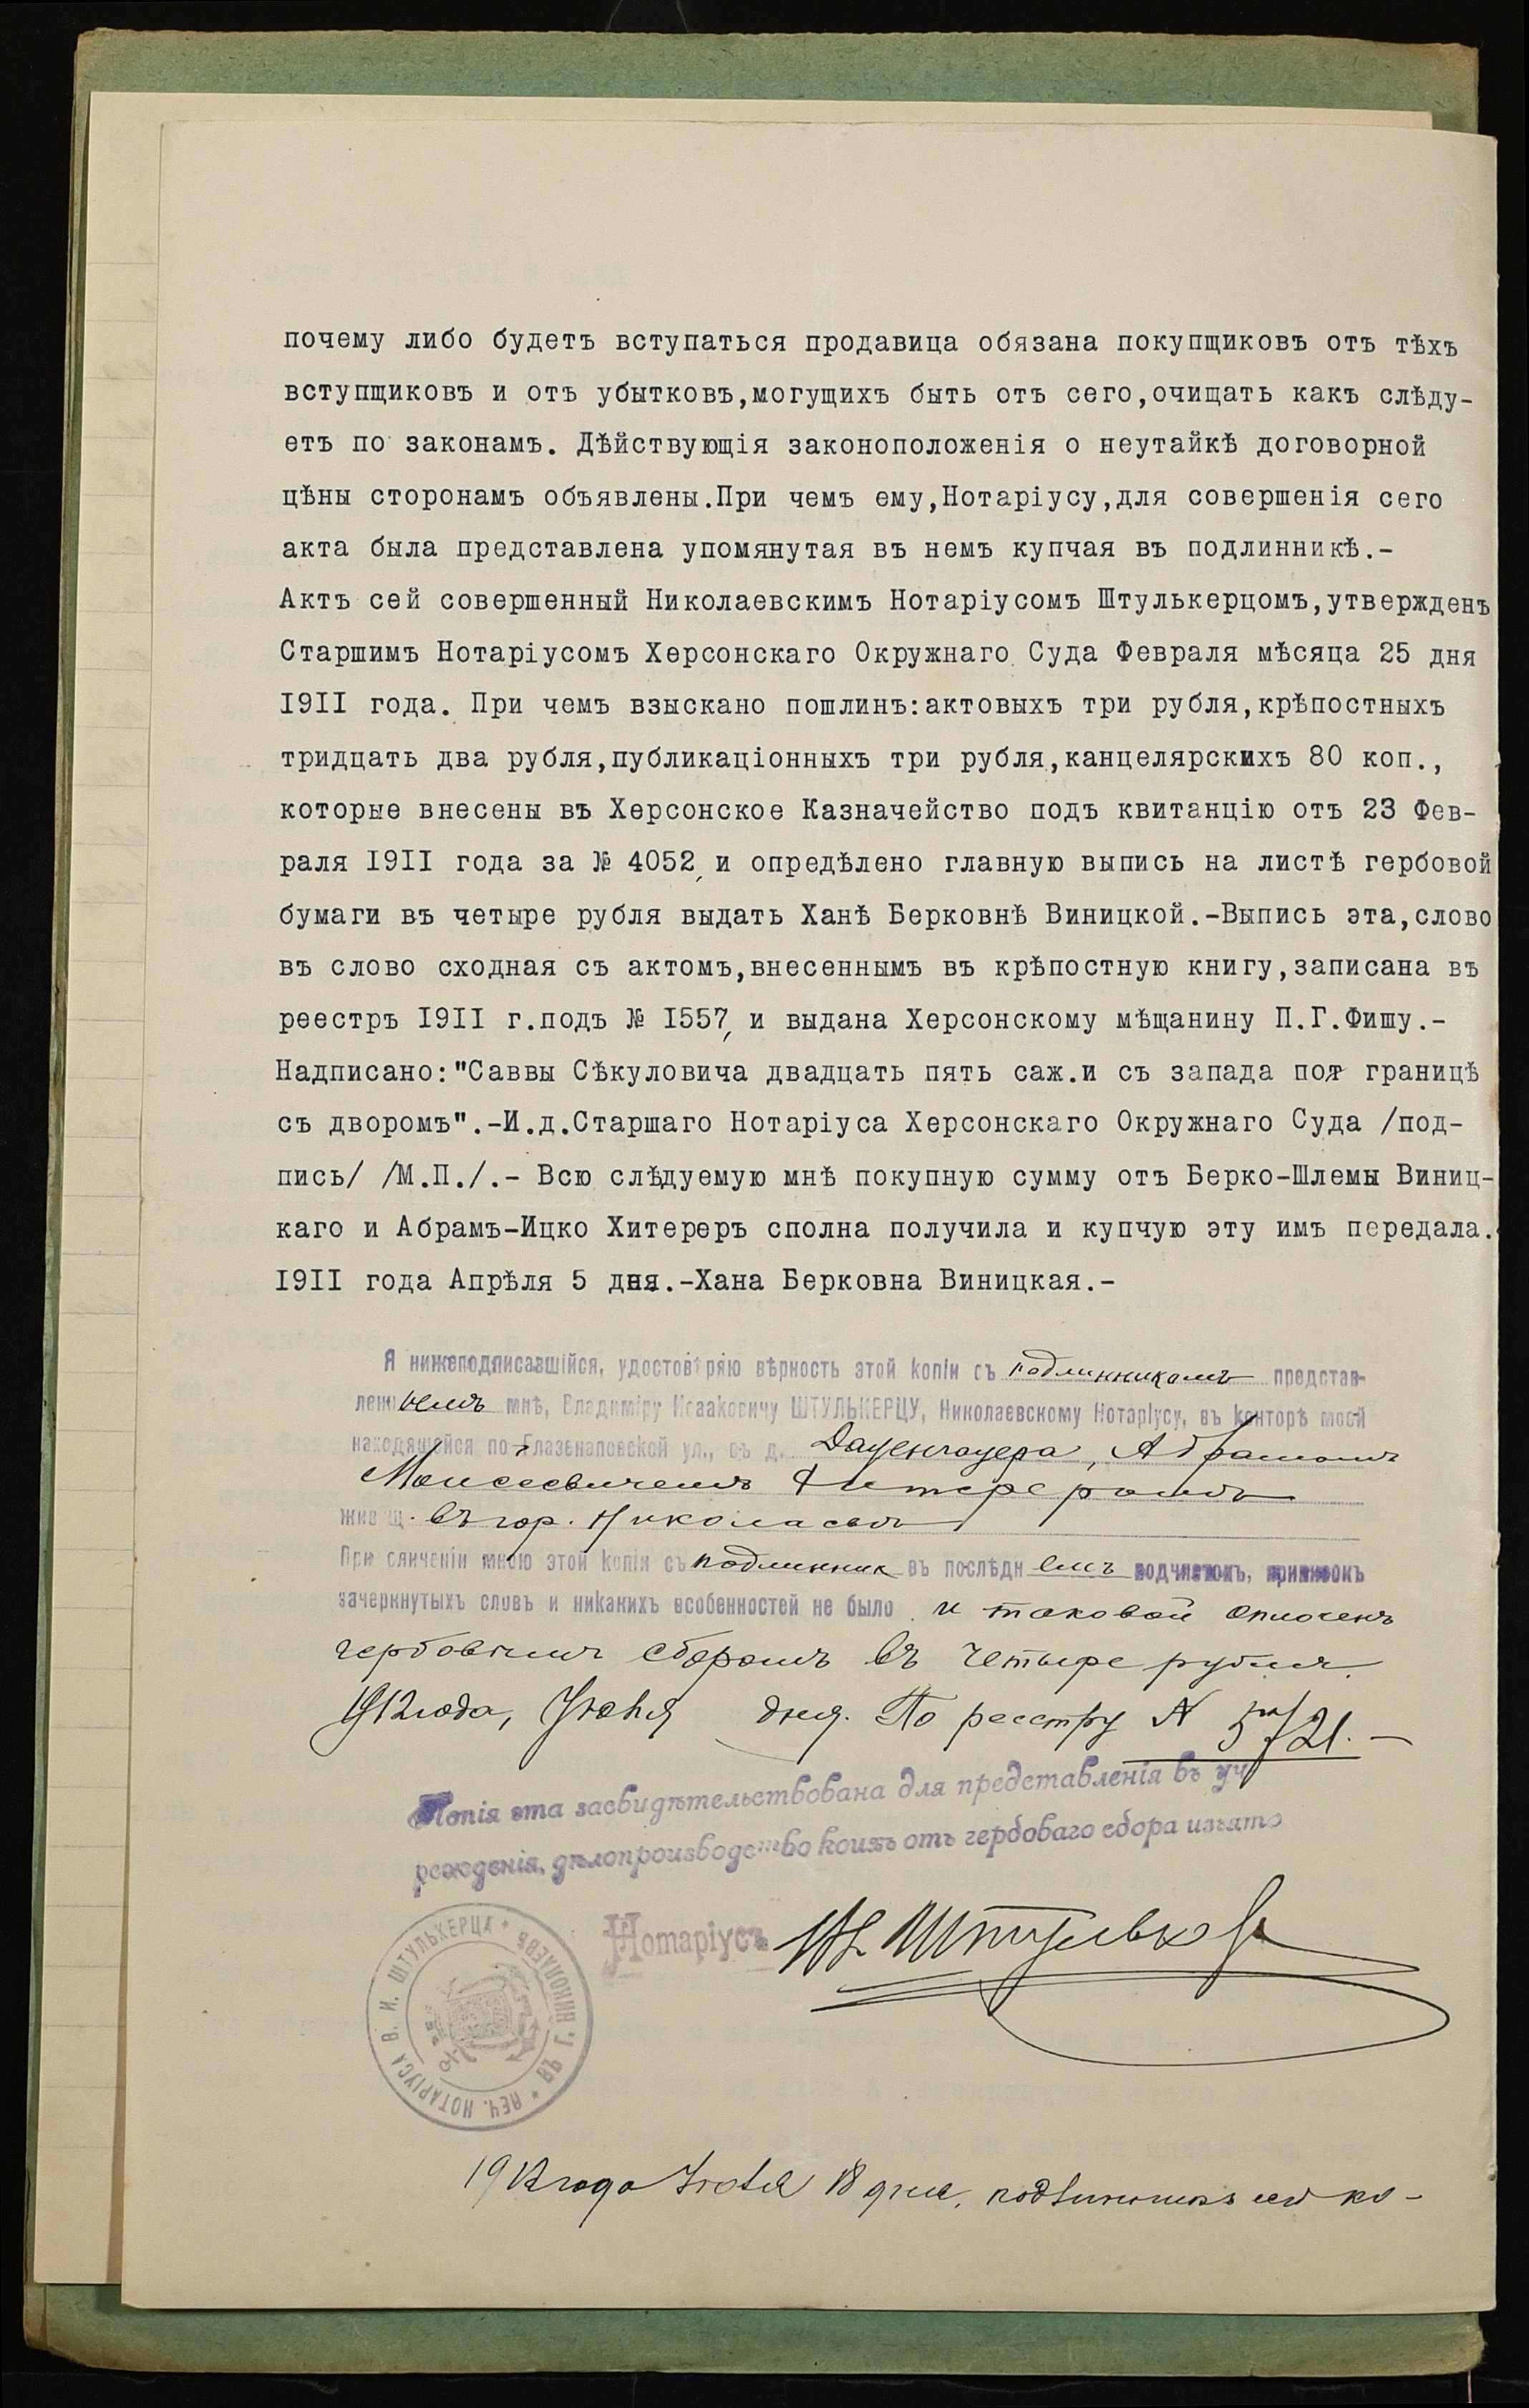 почему либо будетъ вступаться продавица обязана покупщиковъ отъ тѣхъ
вступщиковъ и отъ убытковъ,могущихъ быть отъ сего,очищать какъ слѣду-
етъ по законамъ. Дѣйствующія законоположенія о неутайкѣ договорной
цѣны сторонамъ объявлены.При чемъ ему,Нотаріусу,для совершенія сего
акта была представлена упомянутая въ немъ купчая въ подлинникѣ.-
Актъ сей совершенный Николаевскимъ Нотаріусомъ Штулькерцомъ,утвержденъ
Старшимъ Нотаріусомъ Херсонскаго Окружнаго Суда Февраля мѣсяца 25 дня
I9II года. При чемъ взыскано пошлинъ:актовыхъ три рубля,крѣпостныхъ
тридцать два рубля,публикаціонныхъ три рубля,канцелярскихъ 80 коп.,
которые внесены въ Херсонское Казначейство подъ квитанцію отъ 23 Фев-
раля I9II года за № 4052, и опредѣлено главную выпись на листѣ гербовой
бумаги въ четыре рубля выдать Ханѣ Берковнѣ Виницкой.-Выпись эта,слово
въ слово сходная съ актомъ,внесеннымъ въ крѣпостную книгу,записана въ
реестръ I9II г.подъ № I557, и выдана Херсонскому мѣщанину П.Г.Фишу.-
Надписано:"Саввы Сѣкуловича двадцать пять саж.и съ запада по границѣ
съ дворомъ".-И.д.Старшаго Нотаріуса Херсонскаго Окружнаго Суда /под-
пись/ /М.П./.- Всю слѣдуемую мнѣ покупную сумму отъ Берко-Шлемы Виниц-
каго и Абрамъ-Ицко Хитереръ сполна получила и купчую эту имъ передала.
I9II года Апрѣля 5 дня.-Хана Берковна Виницкая.-
Я нижеподписавшійся, удостовѣряю вѣрность этой копіи съ подлинникомъ представ-
леннымъ мнѣ, Владиміру Исааковичу ШТУЛЬКЕРЦУ, Николаевскому Нотаріусу, въ конторѣ моей
находящейся по Глазенаповской ул., въ д. Даценгауера, Абрамомъ
Моисеевичемъ Хитереромъ
живущ. въ гор. Николаевѣ
При сличеніи мною этой копіи съ подлинник въ послѣднемъ подчистокъ, приписокъ
зачеркнутыхъ словъ и никакихъ особенностей не было и таковой оплоченъ
гербовымъ сборомъ въ четыре рубля.
1912 года, Іюня дня. По реестру N
Копія эта засвидѣтельствована для представленія въ уч
режденія, дѣлопроизводство коихъ отъ гербоваго сбора изъято
Нотаріусъ
ПЕЧ. НОТАРІУСА В. И. ШТУЛЬКЕРЦА * ВЪ Г. НИКОЛАЕВѢ *
1912 года 18 дня, подлинникъ сей ко-